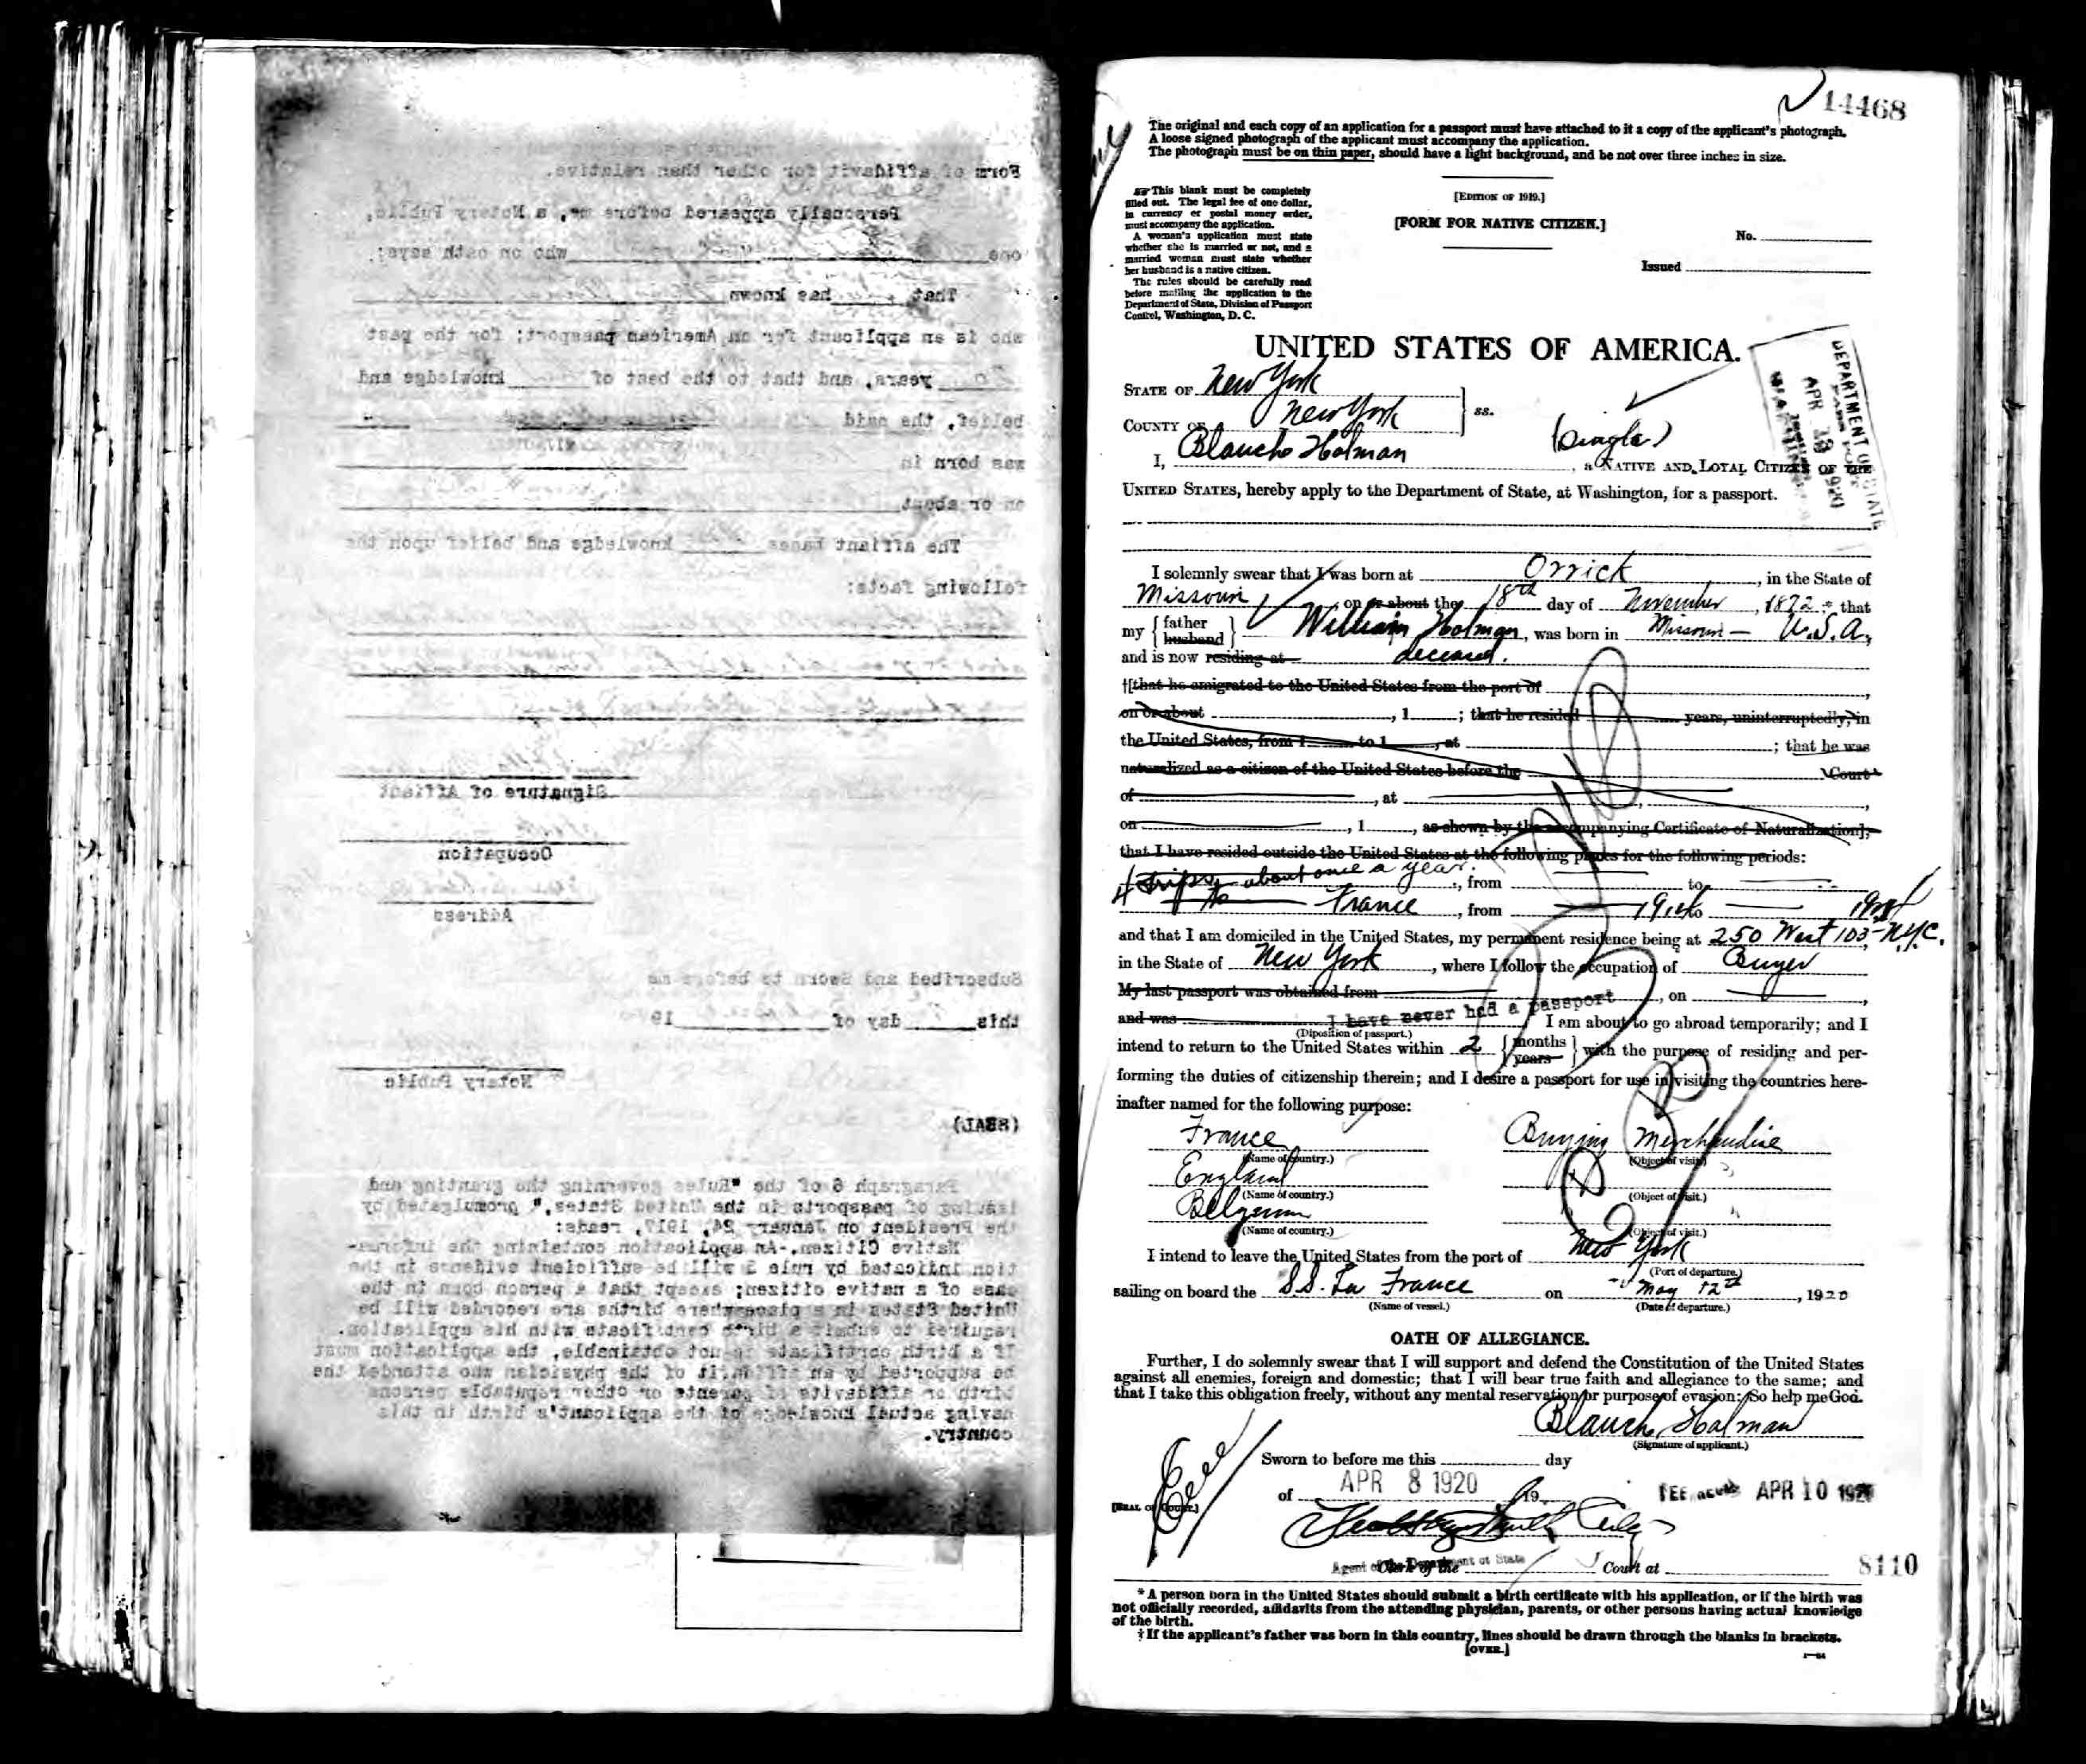 Form of affidavit for other than relative.
Personally appeared before me, a Notary Public,
one who on oath says;
That has known
who is an applicant for an American passport; for the past
20 years, and that to the best of knowledge and
belief, the said
was born in
on or about
The affiant bases knowledge and belief upon the
following facts:
Signature of Affiant
Occupation
Address
Subscribed and Sworn to before me
this day of 19
Notary Public
(SEAL)
Paragraph 6 of the "Rules governing the granting and
issuing of passports in the United States," promulgated by
the President on January 24, 1917, reads:
Native Citizen.-An application containing the informa-
tion indicated by rule 5 will be sufficient evidence in the
case of a native citizen; except that a person born in the
United States in a place where births are recorded will be
required to submit a birth certificate with his application.
If a birth certificate is not obtainable, the application must
be supported by an affidavit of the physician who attended the
birth or affidavits of parents or other reputable persons
having actual knowledge of the applicant's birth in this
country.
14468
The original and each copy of an application for a passport must have attached to it a copy of the applicant's photograph.
A loose signed photograph of the applicant must accompany the application.
The photograph must be on thin paper, should have a light background, and be not over three inches in size.
This blank must be completely
filled out. The legal fee of one dollar,
in currency or postal money order,
must accompany the application.
A woman's application must state
whether she is married or not, and a
married woman must state whether
her husband is a native citizen.
The rules should be carefully read
before mailing the application to the
Department of State, Division of Passport
Control, Washington, D. C.
[EDITION OF 1919.]
[FORM FOR NATIVE CITIZEN.]
No.
Issued
UNITED STATES OF AMERICA.
DEPARTMENT OF STATE
APR 1920
STATE OF New York
COUNTY OF New York ss.
(Single)
I, Blanche Holman, a NATIVE AND LOYAL CITIZEN OF THE
UNITED STATES, hereby apply to the Department of State, at Washington, for a passport.
I solemnly swear that I was born at Orrick, in the State of
Missouri, on or about the 18th day of November, 1872 * that
my {father husband} William Holman, was born in Missouri - U.S.A,
and is now residing at deceased.
†[that he emigrated to the United States from the port of ,
on or about , 1 ; that he resided years, uninterruptedly, in
the United States, from 1 to 1 , at ; that he was
naturalized as a citizen of the United States before the Court
of , at ,
on , 1 , as shown by the accompanying Certificate of Naturalization];
that I have resided outside the United States at the following places for the following periods:
4 trips about once a year. , from to
to France, from to
and that I am domiciled in the United States, my permanent residence being at 250 West 103 - N.Y.C.
in the State of New York, where I follow the occupation of Buyer
My last passport was obtained from , on ,
and was I have never had a passport I am about to go abroad temporarily; and I
(Diposition of passport.)
intend to return to the United States within 2 {months years} with the purpose of residing and per-
forming the duties of citizenship therein; and I desire a passport for use in visiting the countries here-
inafter named for the following purpose:
France Buying Merchandise
(Name of country.) (Object of visit.)
England
(Name of country.) (Object of visit.)
Belgium
(Name of country.) (Object of visit.)
I intend to leave the United States from the port of New York
(Port of departure.)
sailing on board the S.S. La France on May 12th, 1920
(Name of vessel.) (Date of departure.)
OATH OF ALLEGIANCE.
Further, I do solemnly swear that I will support and defend the Constitution of the United States
against all enemies, foreign and domestic; that I will bear true faith and allegiance to the same; and
that I take this obligation freely, without any mental reservation or purpose of evasion: So help me God.
Blanche Holman
(Signature of applicant.)
Sworn to before me this day
of APR 8 1920 19
[SEAL OF COURT.]
FEE APR 10 1920
Agent of the Department of State
Clerk of the Court at
8110
* A person born in the United States should submit a birth certificate with his application, or if the birth was
not officially recorded, affidavits from the attending physician, parents, or other persons having actual knowledge
of the birth.
† If the applicant's father was born in this country, lines should be drawn through the blanks in brackets.
[OVER.]